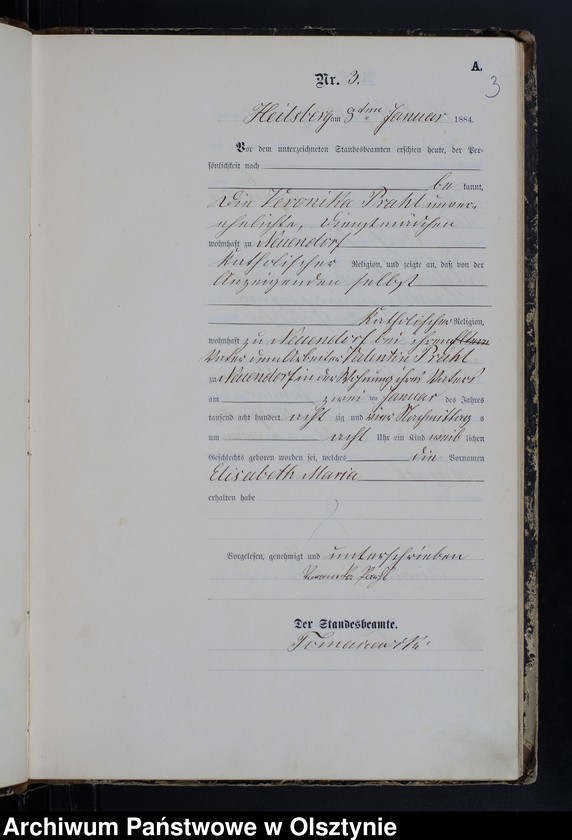 A.
3
Nr. 3.
Heilsberg am 8ten Januar 1884.
Vor dem unterzeichneten Standesbeamten erschien heute, der Per-
sönlichkeit nach
be kannt,
die Veronika Prahl unver-
ehelichte, Dienstmädchen
wohnhaft zu Neuendorf
Katholischer Religion, und zeigte an, daß von der
Anzeigenden selbst
Katholischer Religion,
wohnhaft zu Neuendorf bei ihren Eltern
Vater dem Arbeiter Valentin Prahl
zu Neuendorf in der Wohnung ihres Vaters
am zwei ten Januar des Jahres
tausend acht hundert acht zig und vier Nachmittag s
um acht Uhr ein Kind weib lichen
Geschlechts geboren worden sei, welches die Vornamen
Elisabeth Maria
erhalten habe
Vorgelesen, genehmigt und unterschrieben
Veronika Prahl
Der Standesbeamte.
Archiwum Państwowe w Olsztynie